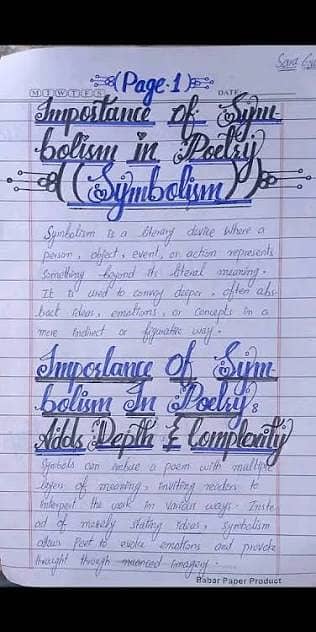 Sara
(Page-1)
M T W T F S
DATE
Importance of Sym-
bolism in Poetry
((Symbolism))
Symbolism is a literary device where a
person, object, event, or action represents
something beyond its literal meaning.
It is used to convey deeper, often abs-
tract ideas, emotions, or concepts in a
more indirect or figurative way.
Importance Of Sym-
bolism In Poetry:
Adds Depth & Complexity
Symbols can imbue a poem with multiple
layers of meaning, inviting readers to
interpret the work in various ways. Inste-
ad of merely stating ideas, symbolism
allows Poet to evoke emotions and provoke
thought through nuanced imagery.....
Babar Paper Product